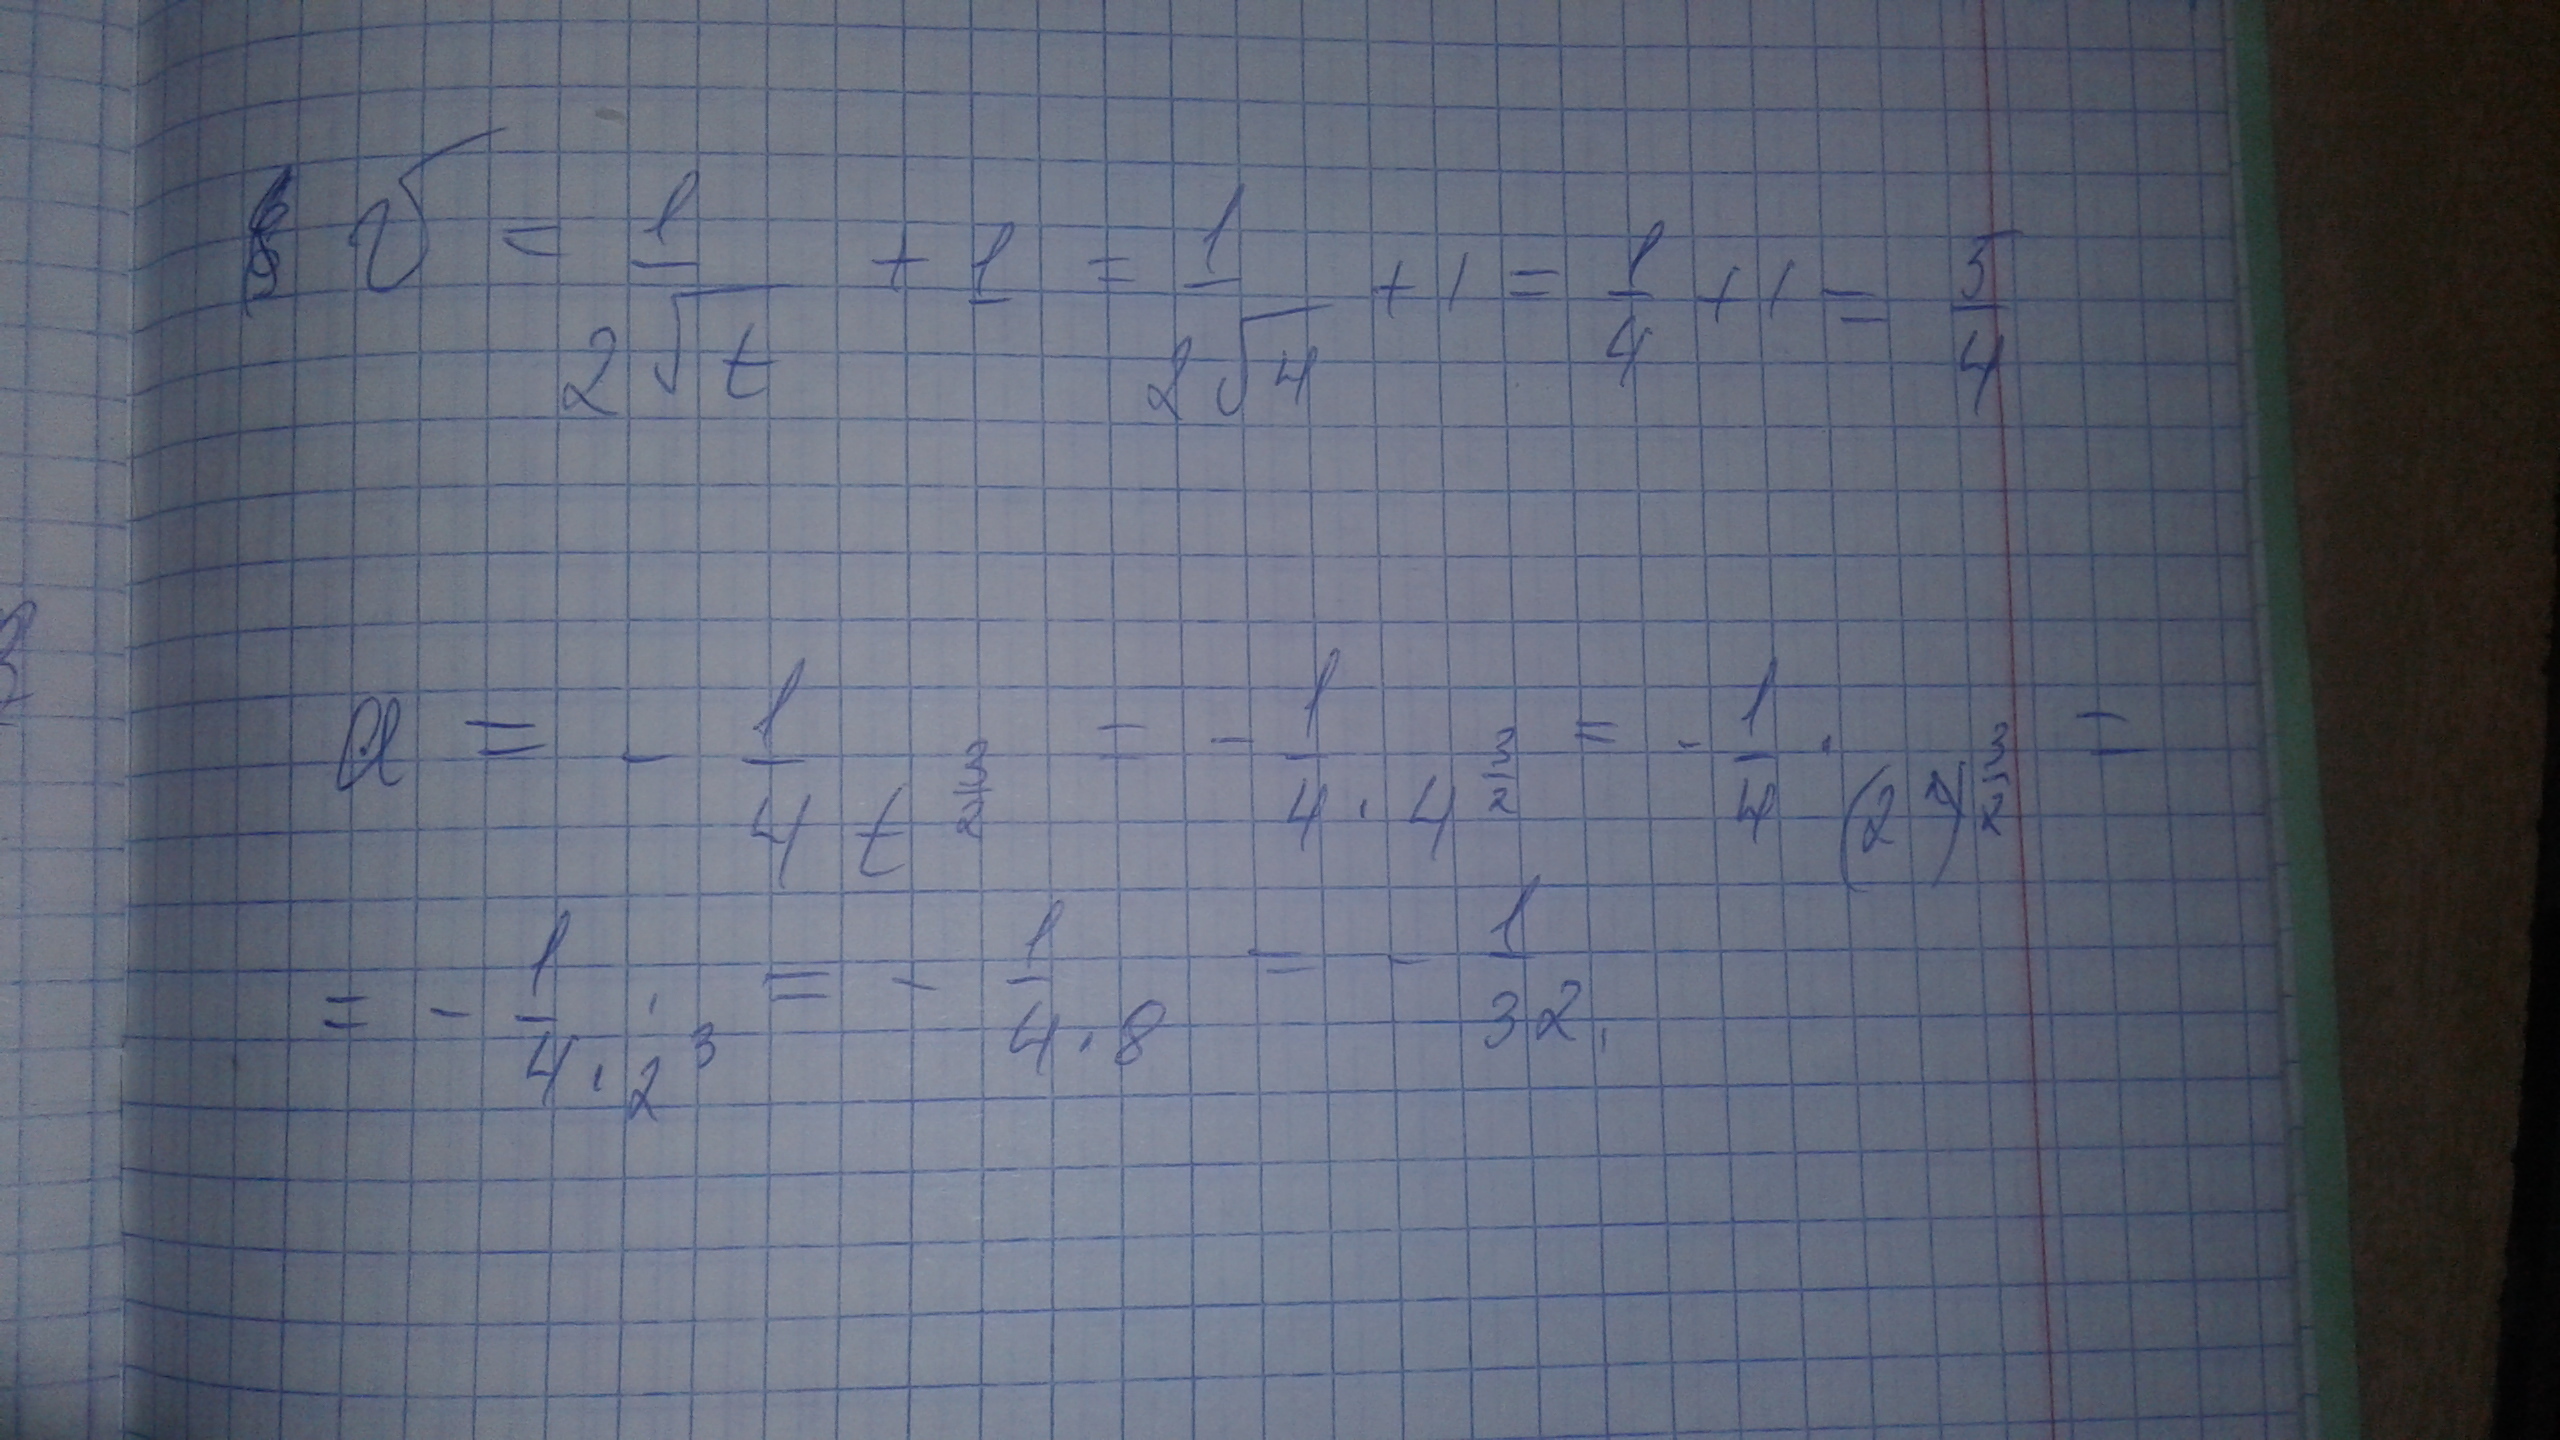 v = 1/(2√t) + 1 = 1/(2√4) + 1 = 1/4 + 1 = 5/4
a = - 1/(4 t^(3/2)) = - 1/(4 · 4^(3/2)) = - 1/(4 · (2²)^(3/2)) =
= - 1/(4 · 2³) = - 1/(4 · 8) = - 1/32.